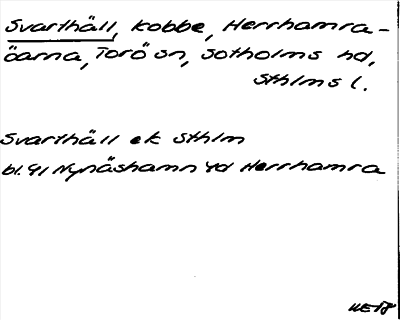 Svarthäll, kobbe, Herrhamra-
öarna, Torö sn, Sotholms hd,
Sthlms l.
Svarthäll ek Sthlm
bl. 41 Nynäshamn 4d Herrhamra